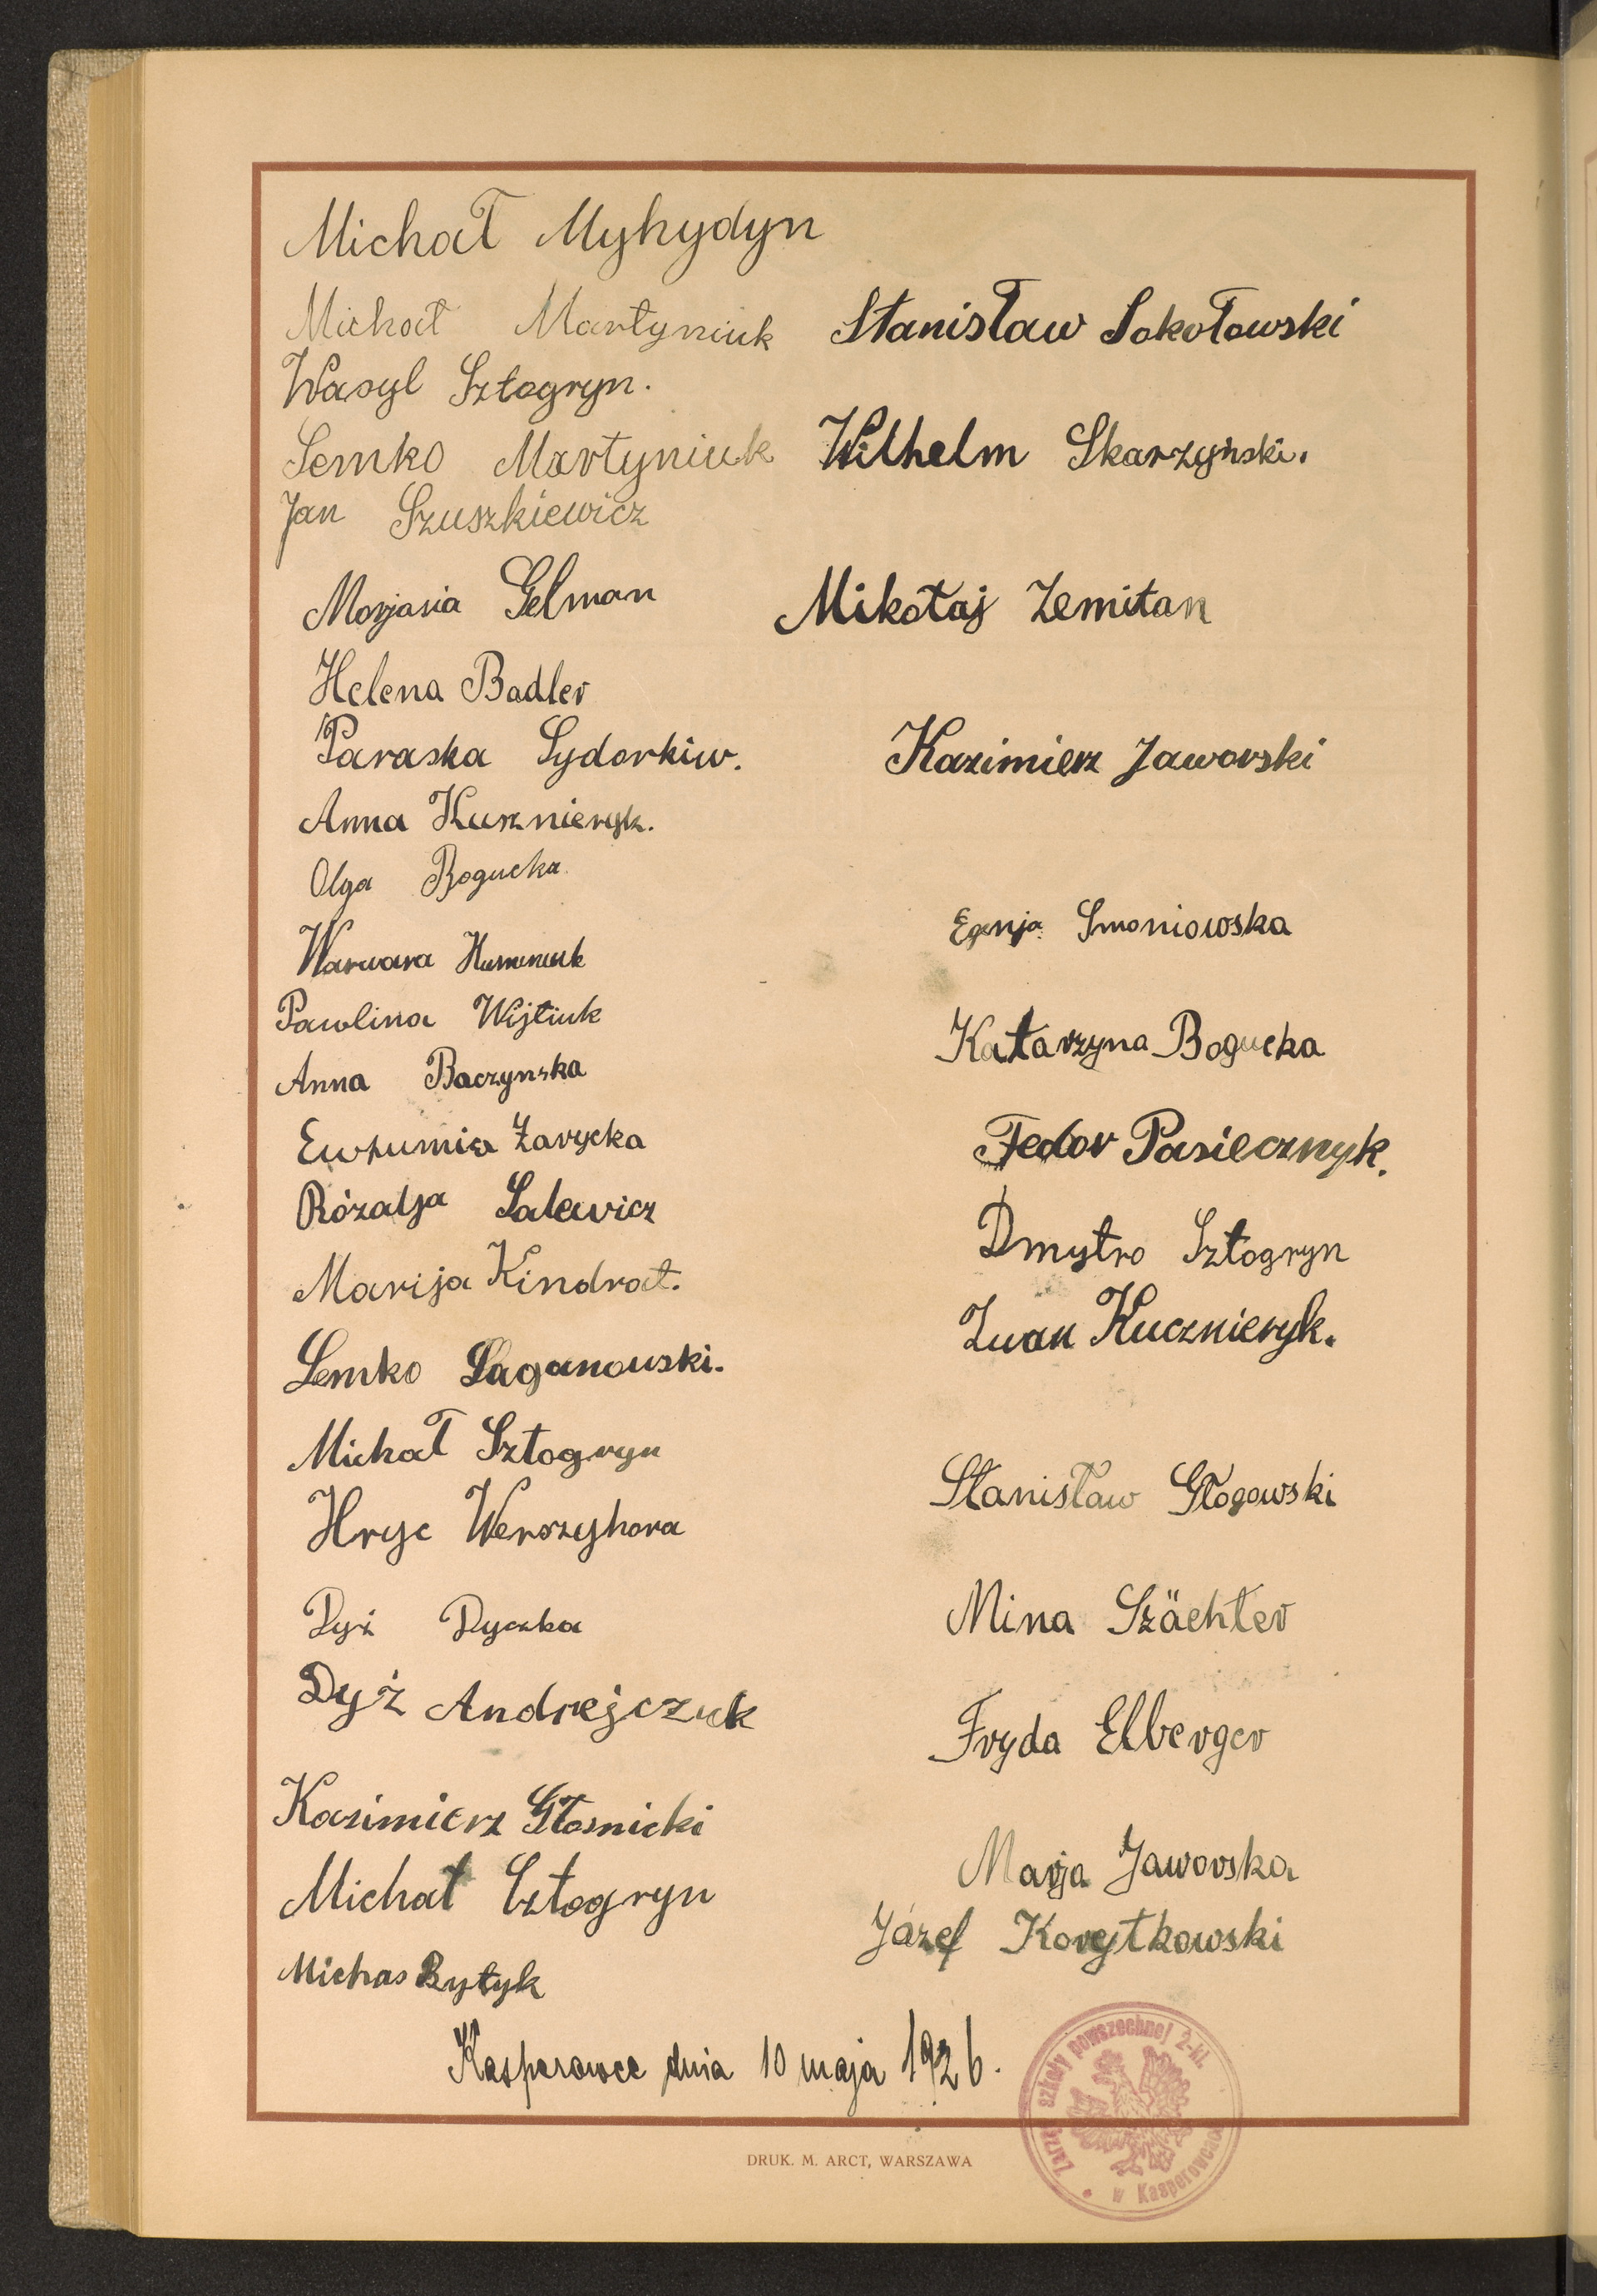 Michał Myhydyn
Michał Martyniuk
Wasyl Sztogryn.
Semko Martyniuk
Jan Szuszkiewicz
Marjasia Gelman
Helena Badler
Paraska Sydorkiw.
Anna Kusznieryk.
Olga Bogucka
Warwara
Pawlina Wijtiuk
Anna Baczynska
Ewhumia Zarycka
Rózalja Salewicz
Marija Kindrat.
Semko Saganowski.
Michał Sztogryn
Hryc Werszyhora
Dyź Dyczka
Dyż Andrejczuk
Kazimierz Głosnicki
Michał Sztogryn
Michas Bytyk
Stanisław Sokołowski
Wilhelm Skarzyński.
Mikołaj Zemitan
Kazimierz Jaworski
Egenja Smoniowska
Katarzyna Bogucka
Fedor Pasiecznyk.
Dmytro Sztogryn
Iwan Kucznieryk.
Stanisław Głogowski
Mina Szächter
Fryda Elberger
Marja Jaworska
Józef Korytkowski
Kasperowce dnia 10 maja 1926.
Zarząd szkoły powszechnej 2-kl.
w Kasperowcach
DRUK. M. ARCT, WARSZAWA